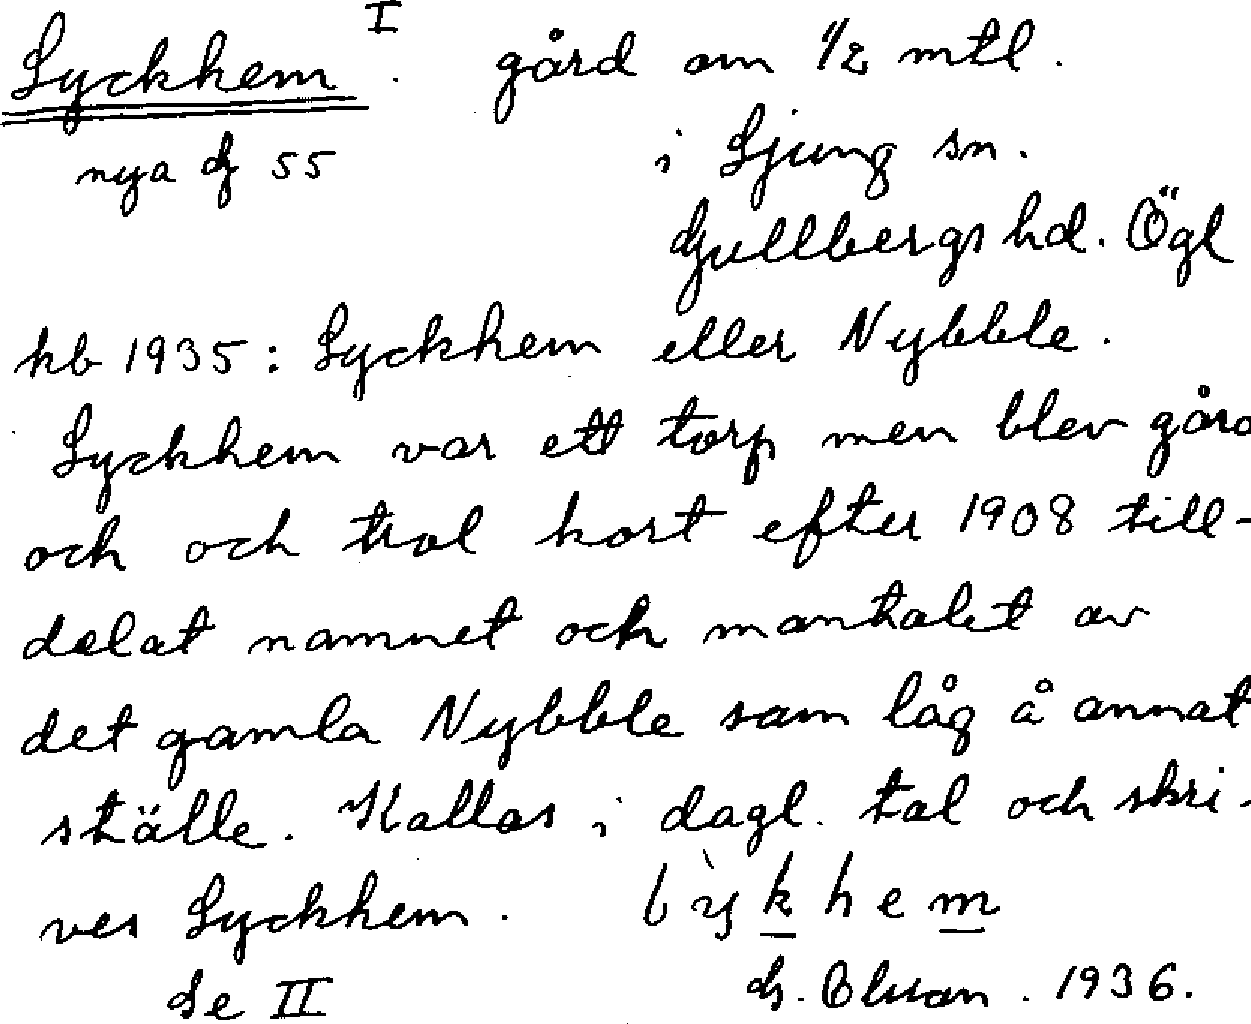 Lyckhem I. gård om 1/2 mtl.
nya G 55 i Ljung sn.
Gullbergs hd. Ögl
kb 1935: Lyckhem eller Nybble.
Lyckhem var ett torp men blev gård
och och trol kort efter 1908 till-
delat namnet och mantalet av
det gamla Nybble som låg å annat
ställe. Kallas i dagl. tal och skri-
ves Lyckhem. lỳkhem
Se II G. 1936.